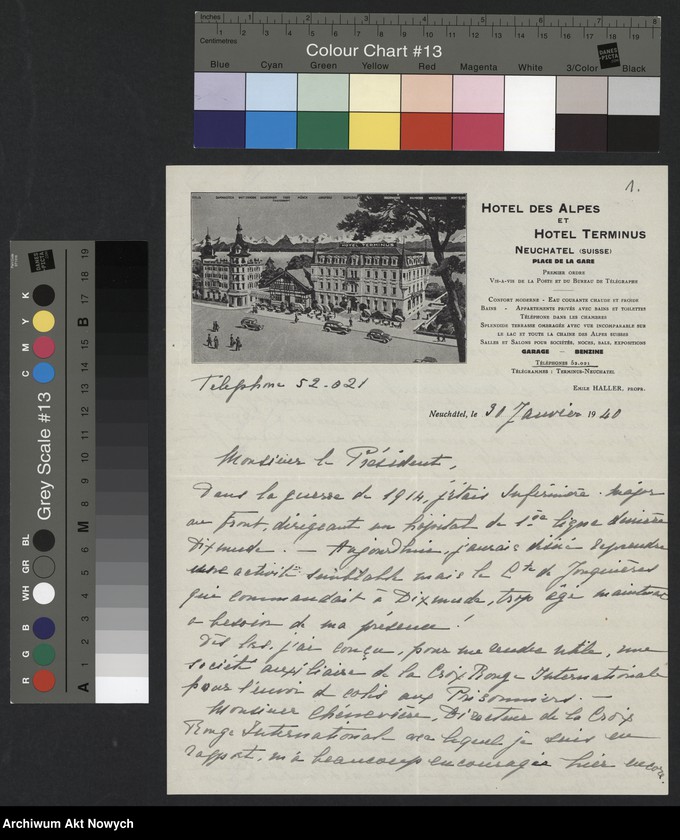 Inches
Centimetres
Colour Chart #13
Blue Cyan Green Yellow Red Magenta White 3/Color Black
Grey Scale #13
C M Y K
R G B WH GR BL
A M B
1.
HOTEL DES ALPES
ET
HOTEL TERMINUS
NEUCHATEL (SUISSE)
PLACE DE LA GARE
PREMIER ORDRE
VIS-A-VIS DE LA POSTE ET DU BUREAU DE TÉLÉGRAPHE
CONFORT MODERNE - EAU COURANTE CHAUDE ET FROIDE
BAINS - APPARTEMENTS PRIVÉS AVEC BAINS ET TOILETTES
TÉLÉPHONE DANS LES CHAMBRES
SPLENDIDE TERRASSE OMBRAGÉE AVEC VUE INCOMPARABLE SUR
LE LAC ET TOUTE LA CHAINE DES ALPES SUISSES
SALLES ET SALONS POUR SOCIÉTÉS, NOCES, BALS, EXPOSITIONS
GARAGE — BENZINE
TÉLÉPHONES 52.021
TÉLÉGRAMMES : TERMINUS-NEUCHATEL
EMILE HALLER, PROPR.
HOTEL TERMINUS
Telephone 52-021
Neuchâtel, le 30 Janvier 1940
Monsieur le Président,
Dans la guerre de 1914, j'étais Infirmière-major
au front, dirigeant un hôpital de 1ère ligne derrière
Dixmude. — Aujourd'hui, j'aurais désiré reprendre
une activité semblable mais le Cte de Jonquières
qui commandait à Dixmude, trop âgé maintenant
a besoin de ma présence !
Dès lors, j'ai conçu, pour me rendre utile, une
société auxiliaire de la Croix Rouge Internationale
pour l'envoi de colis aux Prisonniers. —
Monsieur Chenevière, Directeur de la Croix
Rouge International avec lequel je suis en
rapport, m'a beaucoup encouragée hier encore.
Archiwum Akt Nowych